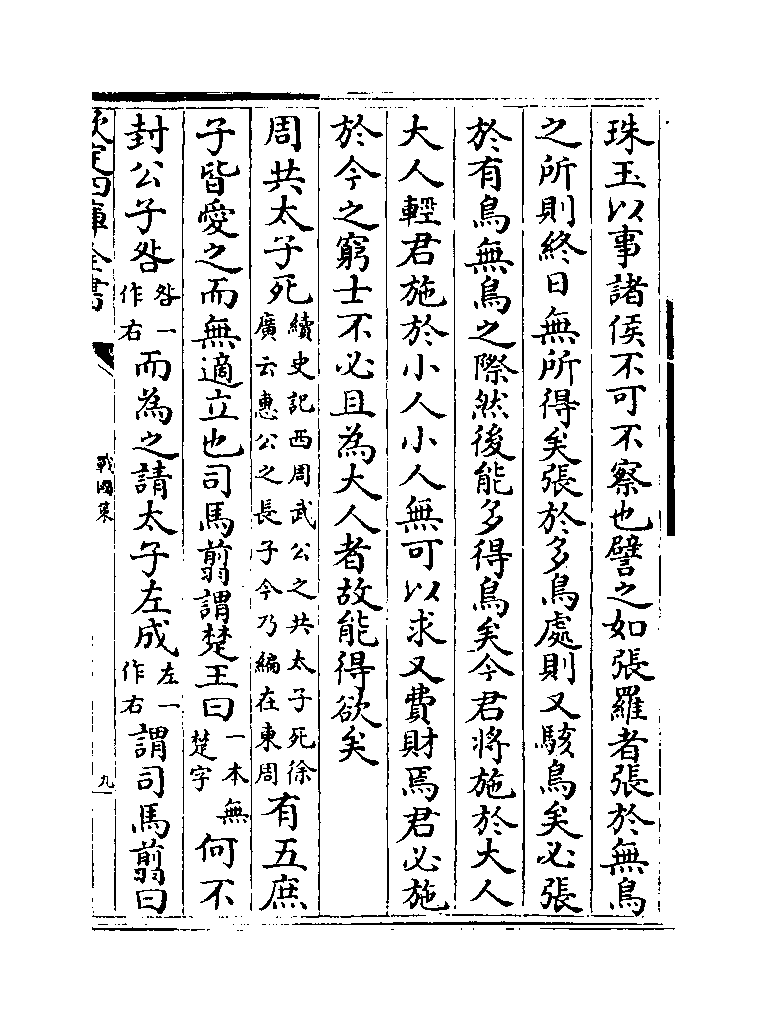 珠玉以事諸侯不可不察也譬之如張羅者張於無鳥
之所則終日無所得矣張於多鳥處則又駭鳥矣必張
於有鳥無鳥之際然後能多得鳥矣今君將施於大人
大人輕君施於小人小人無可以求又費財焉君必施
於今之窮士不必且為大人者故能得欲矣
周共太子死續史記西周武公之共太子死徐廣云惠公之長子今乃編在東周有五庶
子皆愛之而無適立也司馬翦謂楚王曰一本無楚字何不
封公子咎咎一作右而為之請太子左成左一作右謂司馬翦曰
欽定四庫全書
戰國策
九